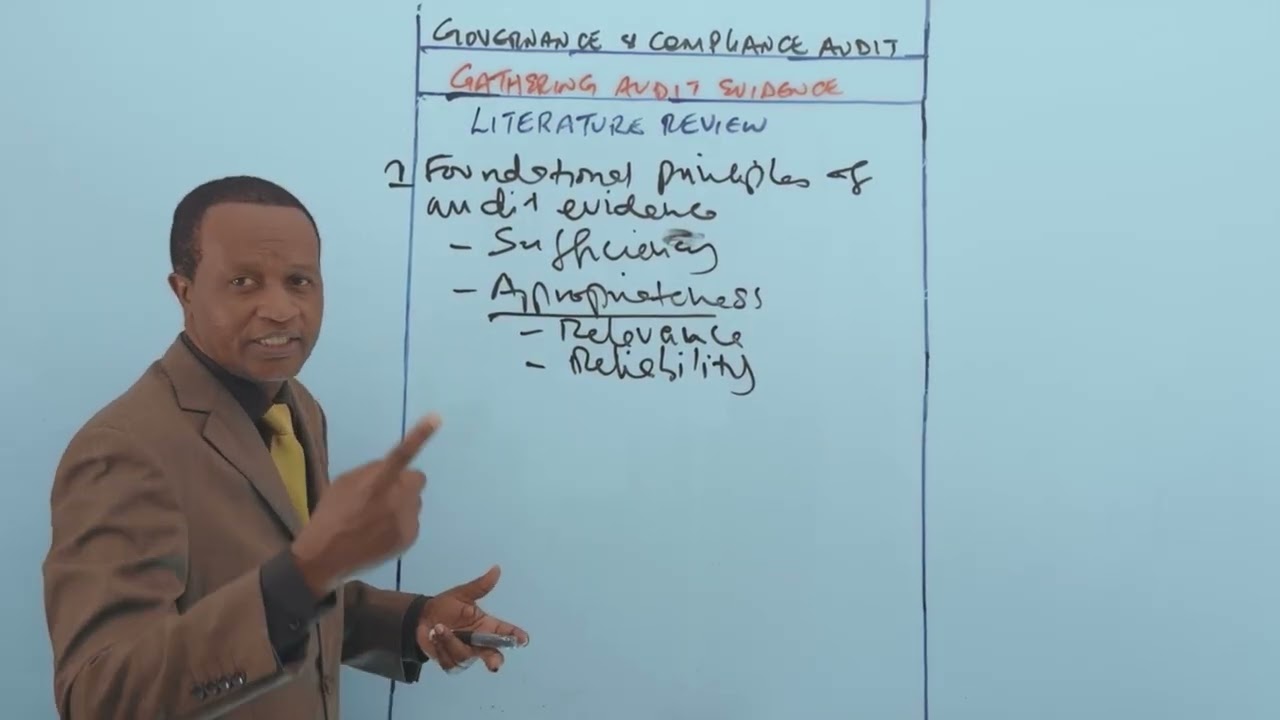 GOVERNANCE & COMPLIANCE AUDIT
GATHERING AUDIT EVIDENCE
LITERATURE REVIEW
1 Foundational principles of
audit evidence
- Sufficiency
- Appropriateness
- Relevance
- Reliability